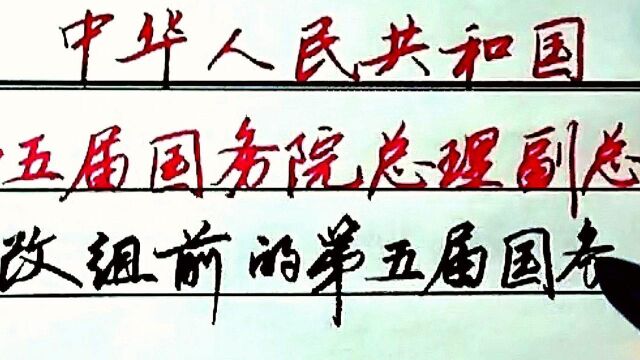 中华人民共和国
五届国务院总理副总
改组前的第五届国务